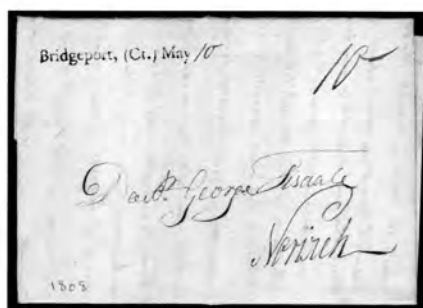 Bridgeport, (Ct.) May 10
10
George Tisdale
Norwich
1808